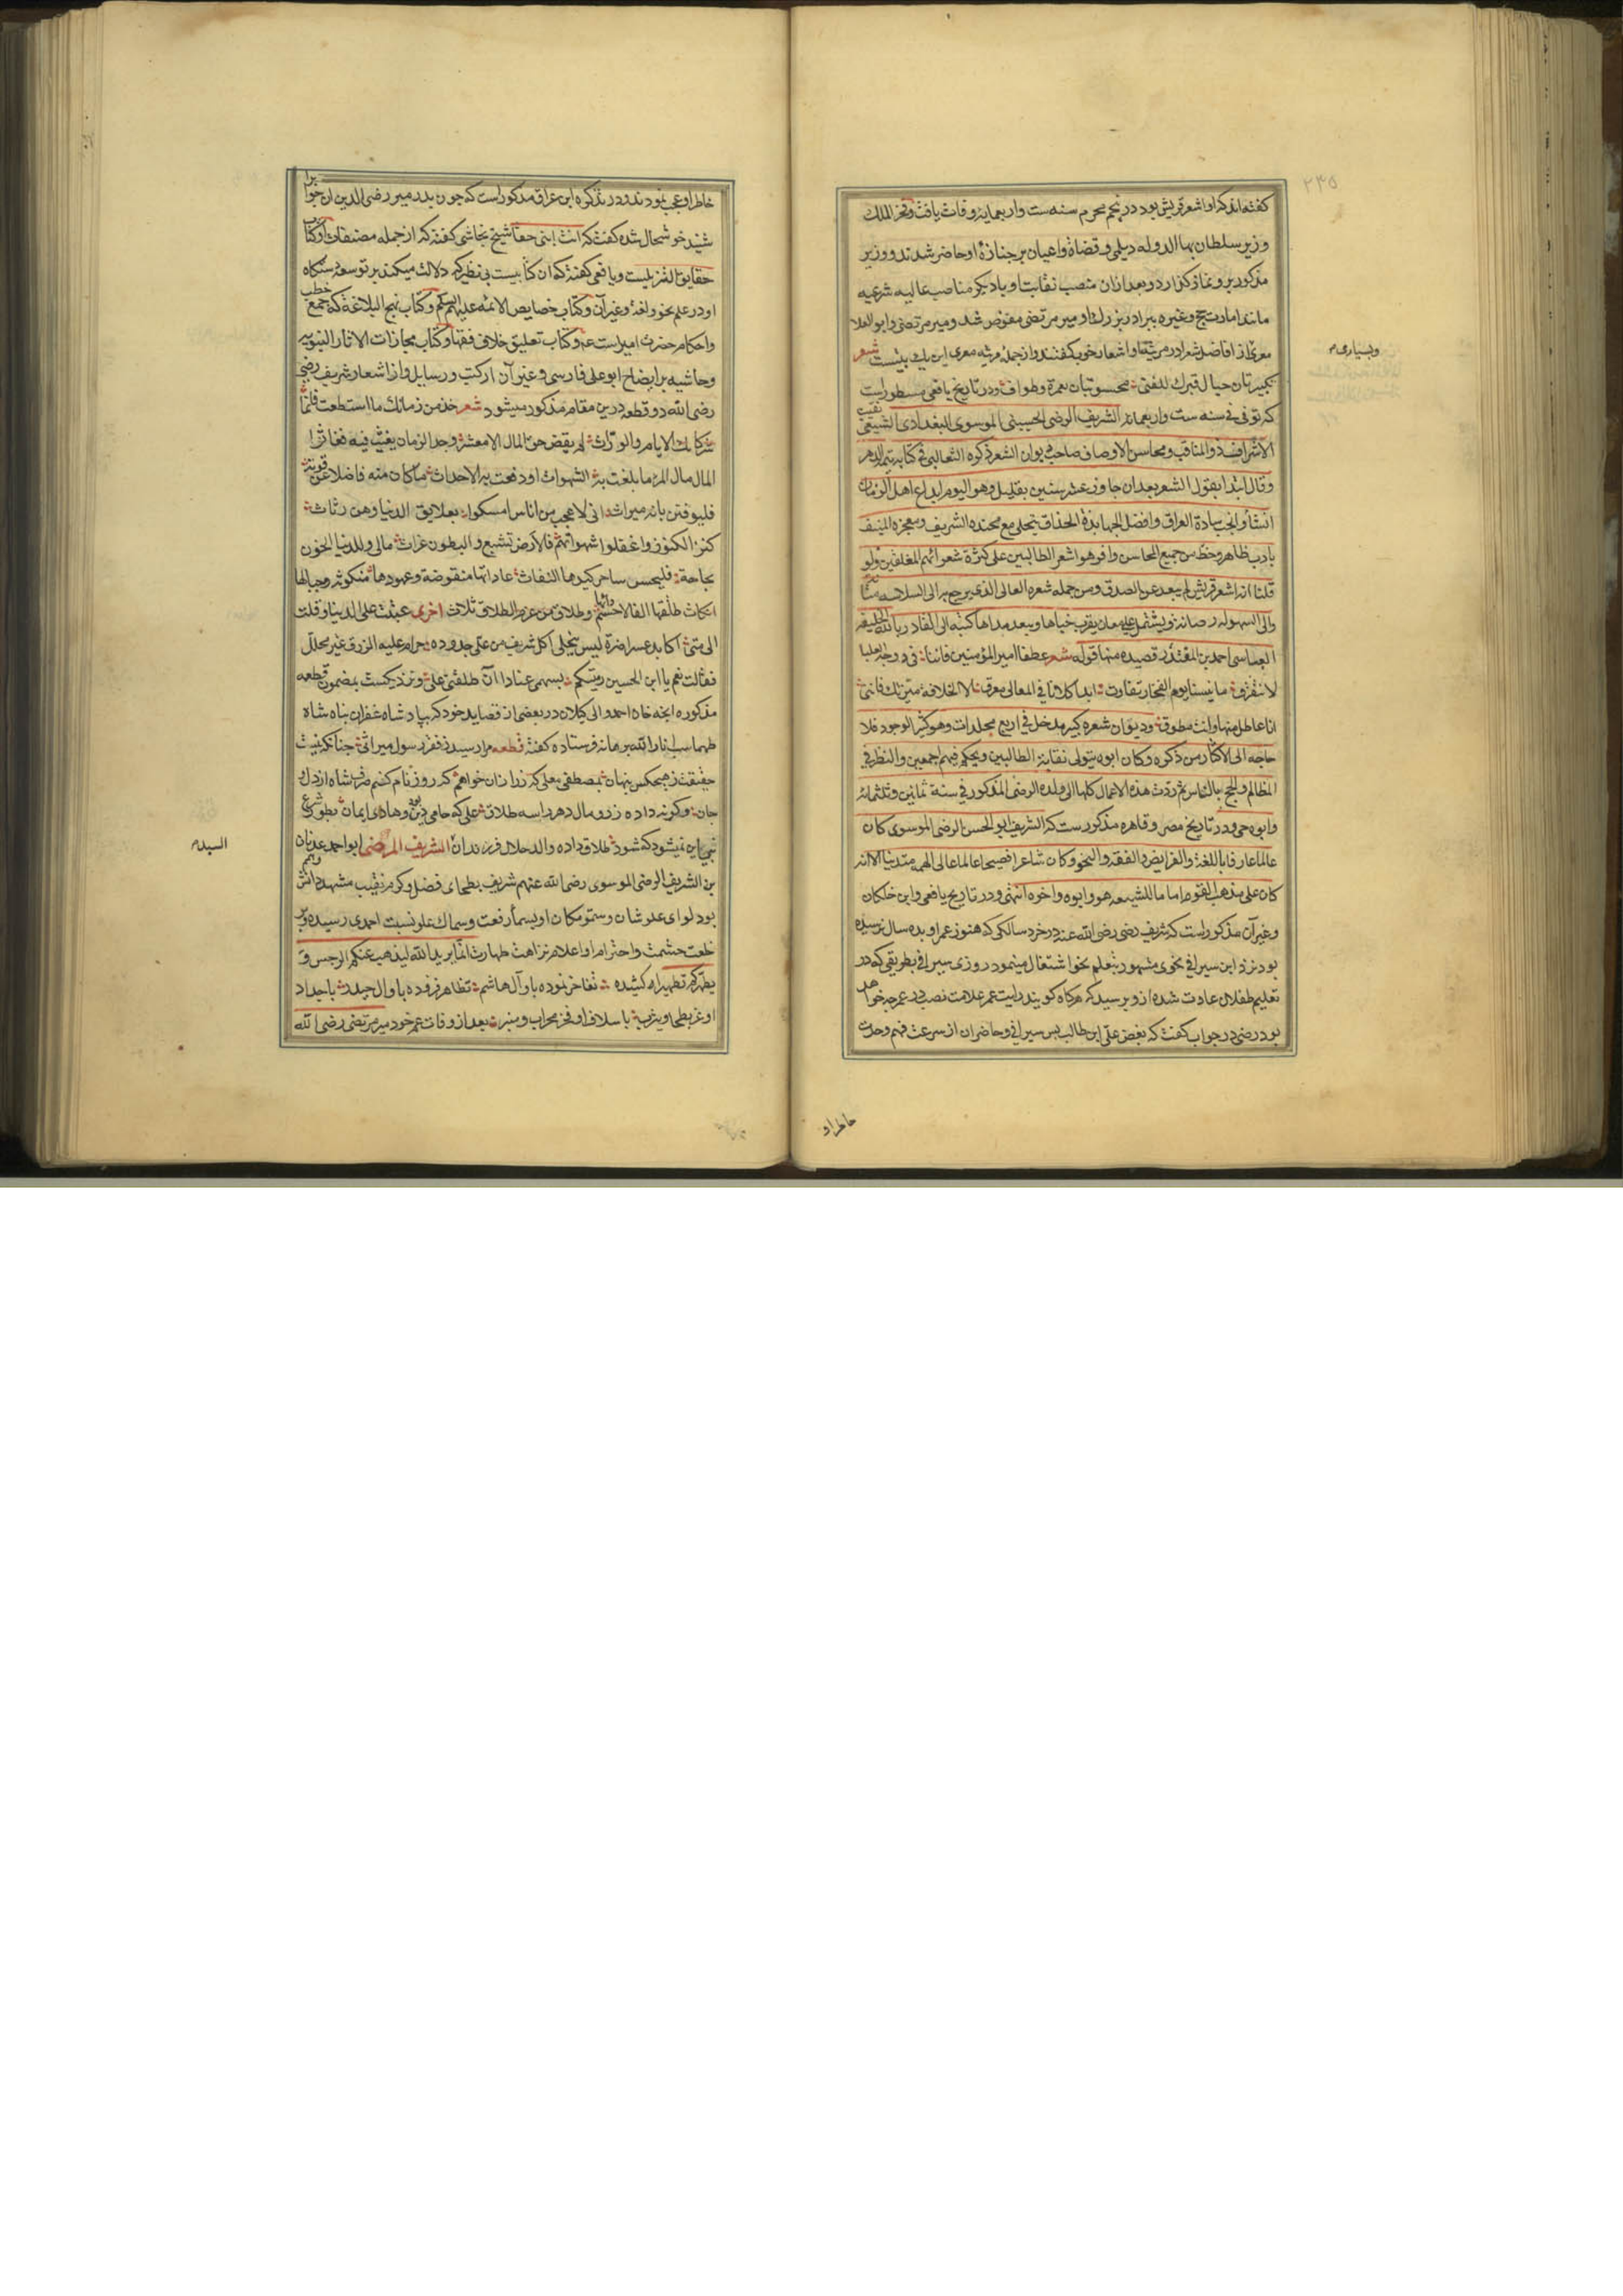 ۲۳۵
کفته‌اند که او اشعر قریش بود در پنجم محرم سنه ست واربعمایه وفات یافت وفخر الملک
وزیر سلطان بها الدوله دیلمی وقضاة واعیان بر جنازهٔ او حاضر شدند و وزیر
مذکور برو نماز کذارد و بعد ازان منصب نقابت او با دیکر مناصب عالیه شرعیه
مانند امارت حج وغیره ببرادر بزرك او میر مرتضی مفوض شد ومیر مرتضی وابو العلا
معری از افاضل شعرا در مرثیه او اشعار خوب کفتند واز جمله مرثیه معری این یك بیتست شعر
وبسیاری
تکبیرتان حیال قبرك للفتی محسوبتان بعمرة وطواف ودر تاریخ یافعی مسطور است
که توفی فی سنه ست واربعمائه الشریف الرضی الحسینی الموسوی البغدادی الشیعی نقیب
الاشراف ذو المناقب ومحاسن الاوصاف صاحب دیوان الشعر ذکره الثعالبی فی کتابه یتیمة الدهر
وقال ابتدا بقول الشعر بعد ان جاوز عشر سنین بقلیل وهو الیوم ابداع اهل الزمان
انشأ وانجب سادة العراق وافضل الجهابذة الحذاق یتحلی مع محتده الشریف ومفخره المنیف
بادب ظاهر وحظ من جمیع المحاسن وافر هو اشعر الطالبین علی کثرة شعرائهم المغلقین ولو
قلنا انه اشعر قریش لم یبعد عن الصدق ومن جمله شعره العالی الذی یرجع الی السلاسه
والی السهوله رصانه ویشتمل علی معان یقرب جناها ویبعد مداها کتبه الی القادر بالله الخلیفه
العباسی احمد بن المقتدر قصیده منها قوله شعر عطفا امیر المؤمنین فاننا فی دوحة العلیا
لا نتفرق ما بیننا یوم الفخار تفاوت ابدا کلانا فی المعالی معرق الا الخلافة میزتك فاننی
انا عاطل منها وانت مطوق ودیوان شعره کبیر مدخل فی اربع مجلدات وهو کثیر الوجود فلا
حاجه الی الاکثار من ذکره وکان ابوه یتولی نقابة الطالبین ویحکم فیهم اجمعین والنظر فی
المظالم والحج بالناس ثم ردّت هذه الاعمال کلها الی ولده الرضی المذکور فی سنة ثمانین وثلثمائه
وابوه حی ودر تاریخ مصر وقاهره مذکورست که الشریف ابو الحسن الرضی الموسوی کان
عالما عارفا باللغة والفرایض والفقه والنحو وکان شاعرا فصیحا عالما عالی الهمه متدینا الا انه
کان علی مذهب القوم اماما للشیعه هو وابوه واخوه انتهی ودر تاریخ یافعی وابن خلکان
وغیر آن مذکور است که شریف رضی رضی الله عنه در خرد سالکی که هنوز عمر او بده سال نرسیده
بود نزد ابن سیرافی نحوی مشهور بتعلم نحو اشتغال مینمود روزی سیرافی بطریقی که در
تعلیم طفلان عادت شده ازو پرسید که هرکاه کویند رایت عمر علامت نصب در عمر چه خواهد
بود رضی در جواب کفت که بغض علی ابن طالب پس سیرافی وحاضران از سرعت فهم وحدت
خاطر او
خاطر او عجب نمودند ودر تذکره ابن عراق مذکور است که چون پدر میر رضی الدین ان جواب را
شنید خوشحال شده کفت که انت ابنی حقا شیخ نجاشی کفته که از جمله مصنفات او کتاب
حقایق التنزیلست ویافعی کفته که ان کتابیست بی نظیر که دلالت میکند بر توسعه دستکاه
او در علم نحو ولغة وغیر آن وکتاب خصایص الائمه علیهم السلام وکتاب نهج البلاغه که جمع خطب
واحکام حضرت امیر است عه وکتاب تعلیق خلاف فقها وکتاب مجازات الاثار النبویه
وحاشیه بر ایضاح ابو علی فارسی وغیر آن از کتب ورسایل واز اشعار شریف رضی
رضی الله دو قطعه درین مقام مذکور میشود شعر خذ من زمانك ما استطعت فانما
شرکاءك الایام والورّاث لم یقض حق المال الا معشر وجد الزمان یعیث فیه فعاثوا
المال مال المرء ما بلغت به الشهوات او دفعت به الاحداث ما کان منه فاضلا عن قوته
فلیوقنن بانه میراث انی لاعجب من اناس امسکوا بعلایق الدنیا وهن رثاث
کنزوا الکنوز واغفلوا شهواتهم فالارض تشبع والبطون غراث مالی وللدنیا الخؤن
بحاجة فلیخس ساحر کیدها النفاث عاداتها منقوضة وعهودها منکوثه وحبالها
انکاث طلقها الفا لاحسم دائها وطلاق من عزم الطلاق ثلاث اخری عتبت علی الدنیا وقلت
الی متی اکابد عسرا ضرّه لیس ینجلی اکل شریف من علی جدوده حرام علیه الرزق غیر محلل
فقالت نعم یا ابن الحسین رمیتکم بسهمی عنادا آن طلقنی علی ونزدیکست بمضمون قطعه
مذکوره انچه خان احمد والی کیلان در بعضی از قصاید خود که بپادشاه غفران پناه شاه
طهماسب انار الله برهانه فرستاده کفته قطعه مرا رسید ز فقر رسول میراثی چنانکه نیست
حقیقت ز هیچکس پنهان بمصطفی معلی که زر ازان خواهم که روز نام کنم صرف شاه از دل و
جان وکر نه داده زر ومال دهر را سه طلاق علی که حامی دین بود وهادی ایمان بطور شرع
نبی این نمیشود که شود طلاق داده والد حلال فرزندان الشریف المرضی ابو احمد عدنان
السید
بن الشریف الرضی الموسوی رضی الله عنهم شریف بطحای فضل وکرم نقیب مشهد دانش
بود لوای علو شان وسمو مکان او بسماء رفعت وسماك علو نسبت احمدی رسیده وبر
خلعت حشمت واحترام او اعلام نزاهت طهارت انما یرید الله لیذهب عنکم الرجس و
یطهرکم تطهیرا کشیده تفاخر نموده باو آل هاشم تظاهر فزوده باو ال حیدر باجداد
او عز بطحا ویثرب باسلاف او فخر محراب ومنبر بعد از وفات عم خود میر مرتضی رضی الله